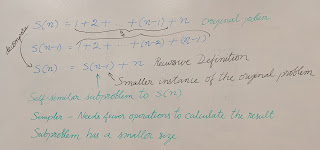 S(n) = 1 + 2 + ... + (n-1) + n Original problem
S(n-1) = 1 + 2 + ... + (n-2) + (n-1)
S(n) = S(n-1) + n Recursive Definition
Smaller instance of the original problem
Self-similar subproblem to S(n)
Simpler - Needs fewer operations to calculate the result
Subproblem has a smaller size